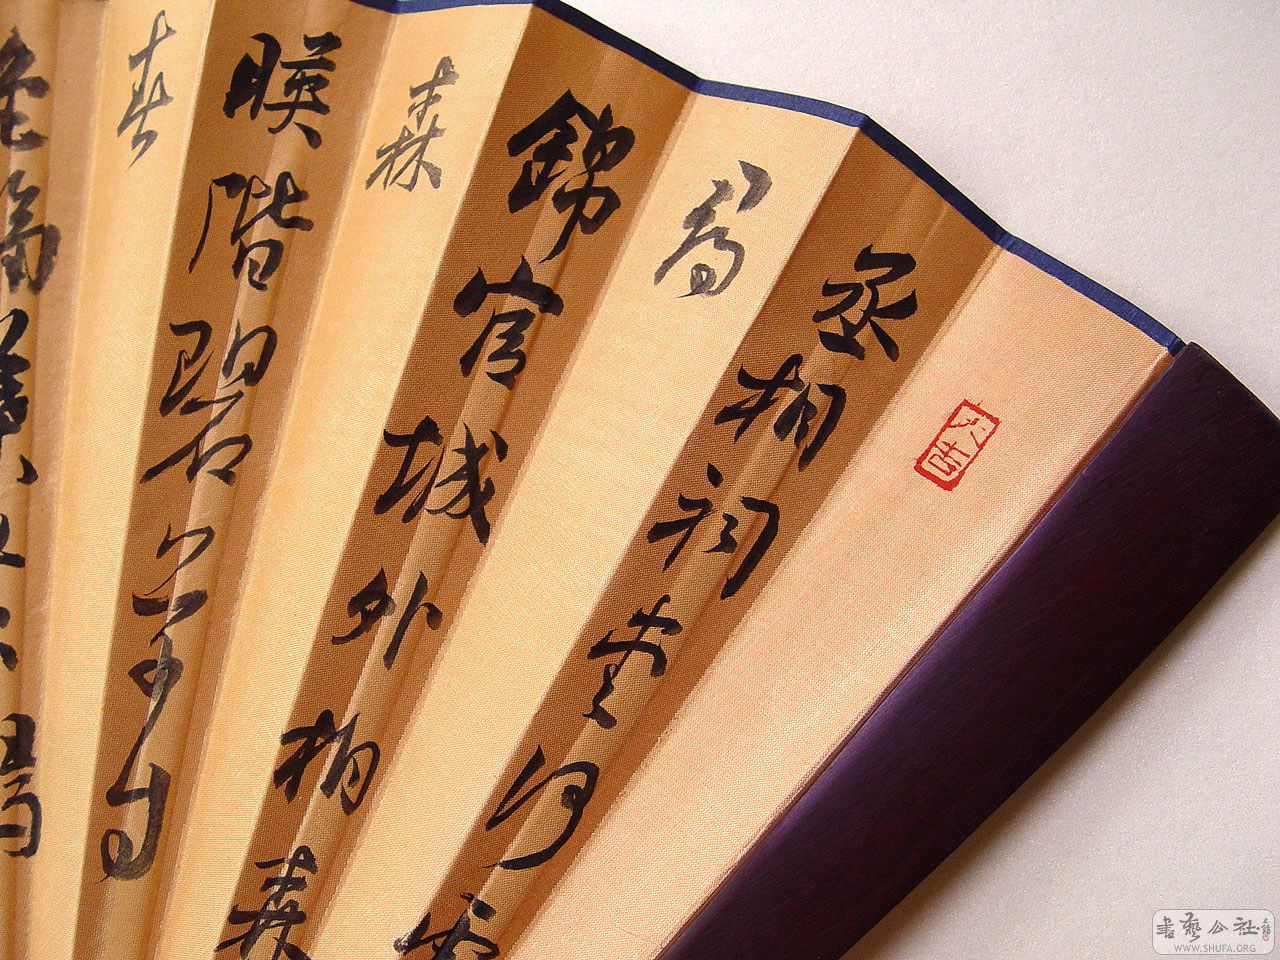 丞相祠堂何處
尋
錦官城外柏森
森
暎階碧草自
春
色隔葉
書藝公社
WWW.SHUFA.ORG